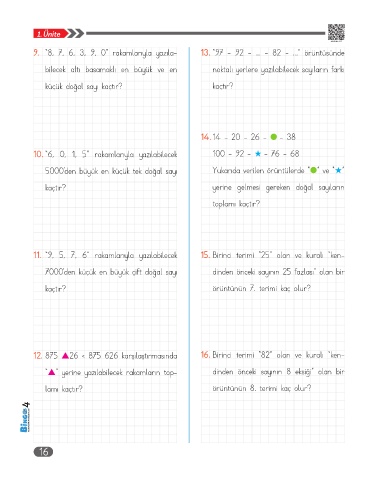 1. Ünite
9. "8, 7, 6, 3, 9, 0" rakamlarıyla yazıla-
bilecek altı basamaklı en büyük ve en
küçük doğal sayı kaçtır?
10. "6, 0, 1, 5" rakamlarıyla yazılabilecek
5000'den büyük en küçük tek doğal sayı
kaçtır?
11. "9, 5, 7, 6" rakamlarıyla yazılabilecek
7000'den küçük en büyük çift doğal sayı
kaçtır?
12. 875 ▲26 < 875 626 karşılaştırmasında
"▲" yerine yazılabilecek rakamların top-
lamı kaçtır?
13. "97 - 92 - ... - 82 - ..." örüntüsünde
noktalı yerlere yazılabilecek sayıların farkı
kaçtır?
14. 14 - 20 - 26 - ● - 38
100 - 92 - ★ - 76 - 68
Yukarıda verilen örüntülerde "●" ve "★"
yerine gelmesi gereken doğal sayıların
toplamı kaçtır?
15. Birinci terimi "25" olan ve kuralı "ken-
dinden önceki sayının 25 fazlası" olan bir
örüntünün 7. terimi kaç olur?
16. Birinci terimi "82" olan ve kuralı "ken-
dinden önceki sayının 8 eksiği" olan bir
örüntünün 8. terimi kaç olur?
BİNGO 4
16